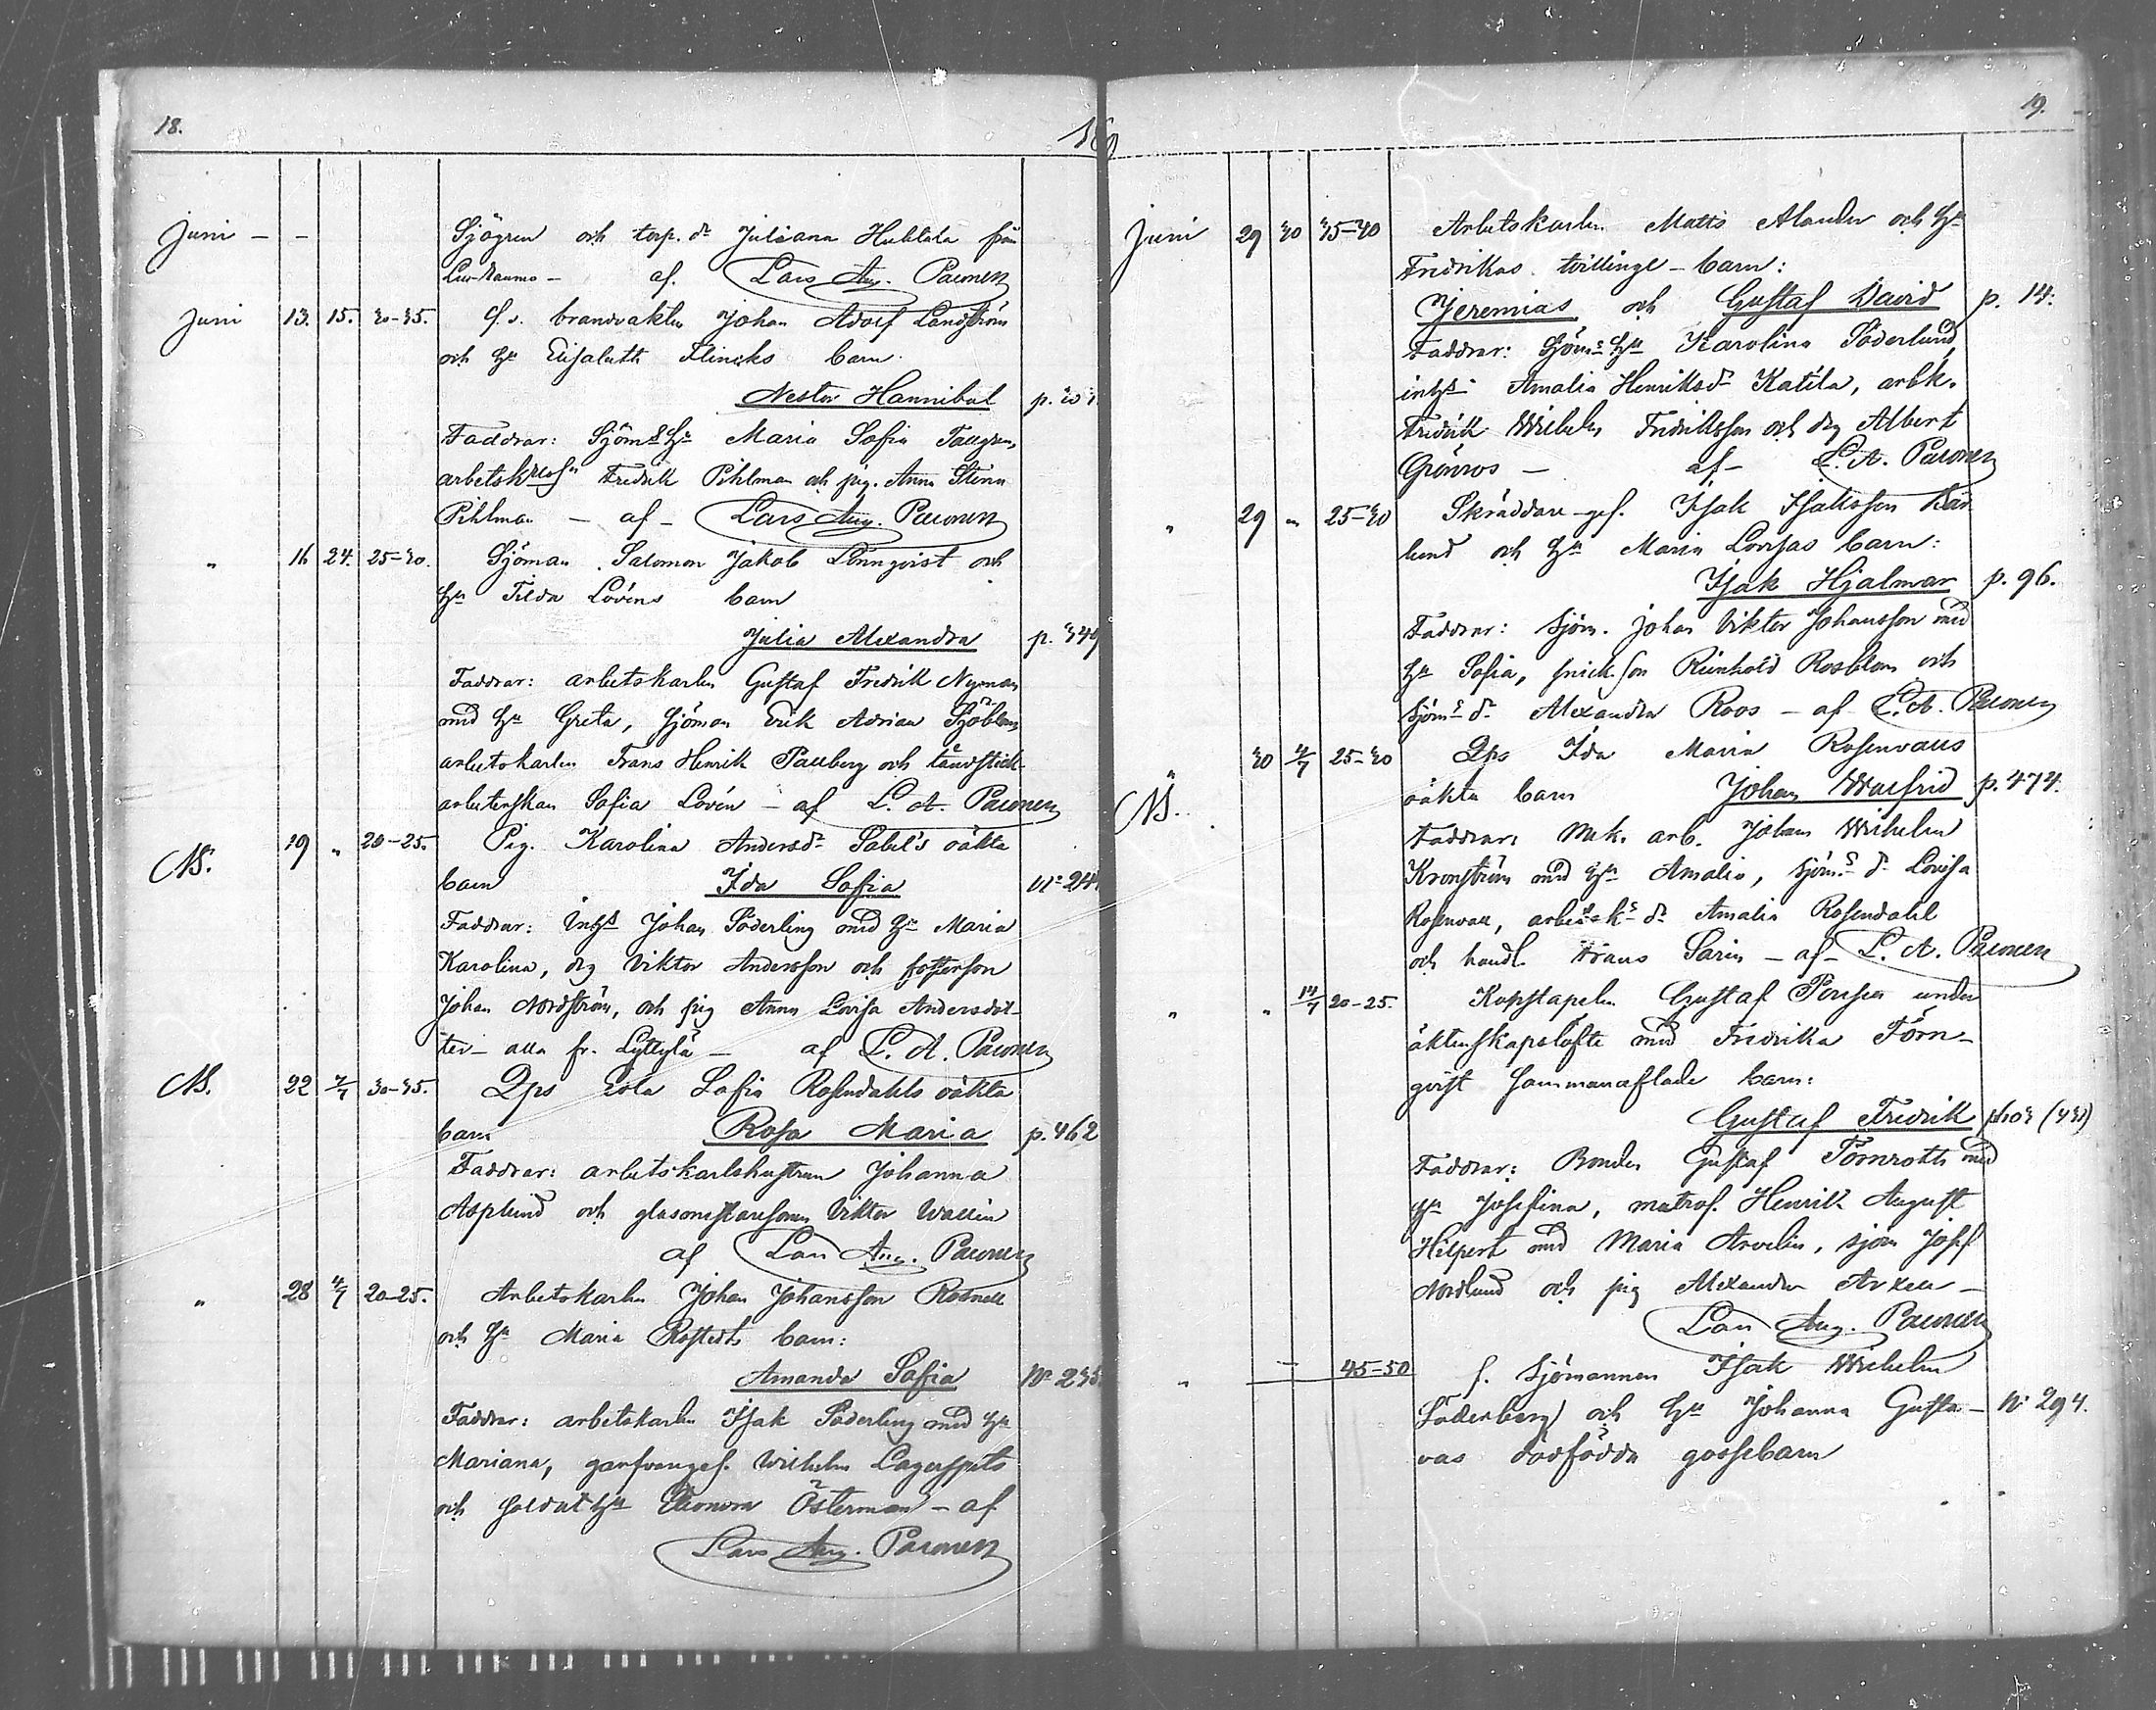 18.
Juni – – Sjögren och torp. dr Juliana Huhtala från
Luv-Raumo – af. Lars Aug. Paunen
Juni 13. 15. 30-35. f. d. brandvakten Johan Adolf Landström
och Hu Elisabeth Flincks barn.
Nestor Hannibal p.
Faddrar: Sjöms Hu Maria Sofia Tallgren,
arbetsk Fredrik Pihlman och pig. Anna Stina
Pihlman – af – Lars Aug. Paunen
„ 16 24. 25-30. Sjöman Salomon Jakob Lönnqvist och
Hu Tilda Lovéns barn
Julia Alexandra p. 349
Faddrar: arbetskarlen Gustaf Fredrik Nyman
med Hu Greta, Sjöman Erik Adrian Sjöblom,
arbetskarlen Frans Henrik Pauberg och tändstick-
arbeterskan Sofia Lovén – af L. A. Paunen
NB. 19 „ 20-25. Pig. Karolina Andersdr Sabel's oäkta
barn Ida Sofia No 244
Faddrar: Inhs Johan Söderling med Hu Maria
Karolina, drg Viktor Andersson och fosterson
Johan Nordström, och pig Anna Lovisa Andersdot-
ter – alla fr. Lyttylä – af L. A. Paunen
NB. 22 2/7 30-35. Qps Eva Sofia Rosendahls oäkta
barn Rosa Maria p. 462
Faddrar: arbetskarlshustrun Johanna
Asplund och glasmästaresonen Viktor Wallin
af Lars Aug. Paunen
„ 28 4/7 20-25. Arbetskarlen Johan Johansson Rosnell
och Hu Maria Rostedts barn:
Amanda Sofia No 235
Faddrar: arbetskarlen Isak Söderling med Hu
Mariana, garfvaregef. Wilhelm Lagerspets
och soldat Hu Eleonora Österman – af
Lars Aug. Paunen
19.
Juni 29 30 35-40 Arbetskarlen Matts Alander och Hu
Fredrikas tvillinge-barn:
Jeremias och Gustaf David p. 14.
Faddrar: Sjöms Hu Karolina Söderlund,
inhs Amalia Henriksdr Katila, arbk.
Fredrik Wilhelm Fredriksson och drg Albert
Grönroos – af – L. A. Paunen
„ 29 „ 25-30 Skräddare-gef. Isak Isaksson
lund och Hu Maria Lovisas barn:
Isak Hjalmar p. 96.
Faddrar: Sjöm. Johan Viktor Johansson med
Hu Sofia, snick. son Reinhold Rosblom och
sjöms dr Alexandra Roos – af L. A. Paunen
„ 30 4/7 25-30 Qps Ida Maria Rosenvalls
NB. oäkta barn Johan Walfrid p. 474.
Faddrar: Mek. arb. Johan Wilhelm
Kronström med Hu Amalia, sjöms dr Lovisa
Rosenvall, arbetsks dr Amalia Rosendahl
och handl. Frans Sarin – af – L. A. Paunen
„ „ 14/7 20-25. Kopslagaren Gustaf under
äktenskapslöfte med Fredrika Törn-
qvist sammanaflade barn:
Gustaf Fredrik
Faddrar: Bonden Gustaf Törnroth med
Hu Josefina, matros. Henrik August
Hilpert med Maria Arvelin, sjöm Josef
Nordlund och pig Alexandra Axell –
Lars Aug. Paunen
„ – 45-50 f. sjömannen Isak Wilhelm
Söderberg och Hu Johanna Gusta- No 294.
vas dödfödda gossebarn